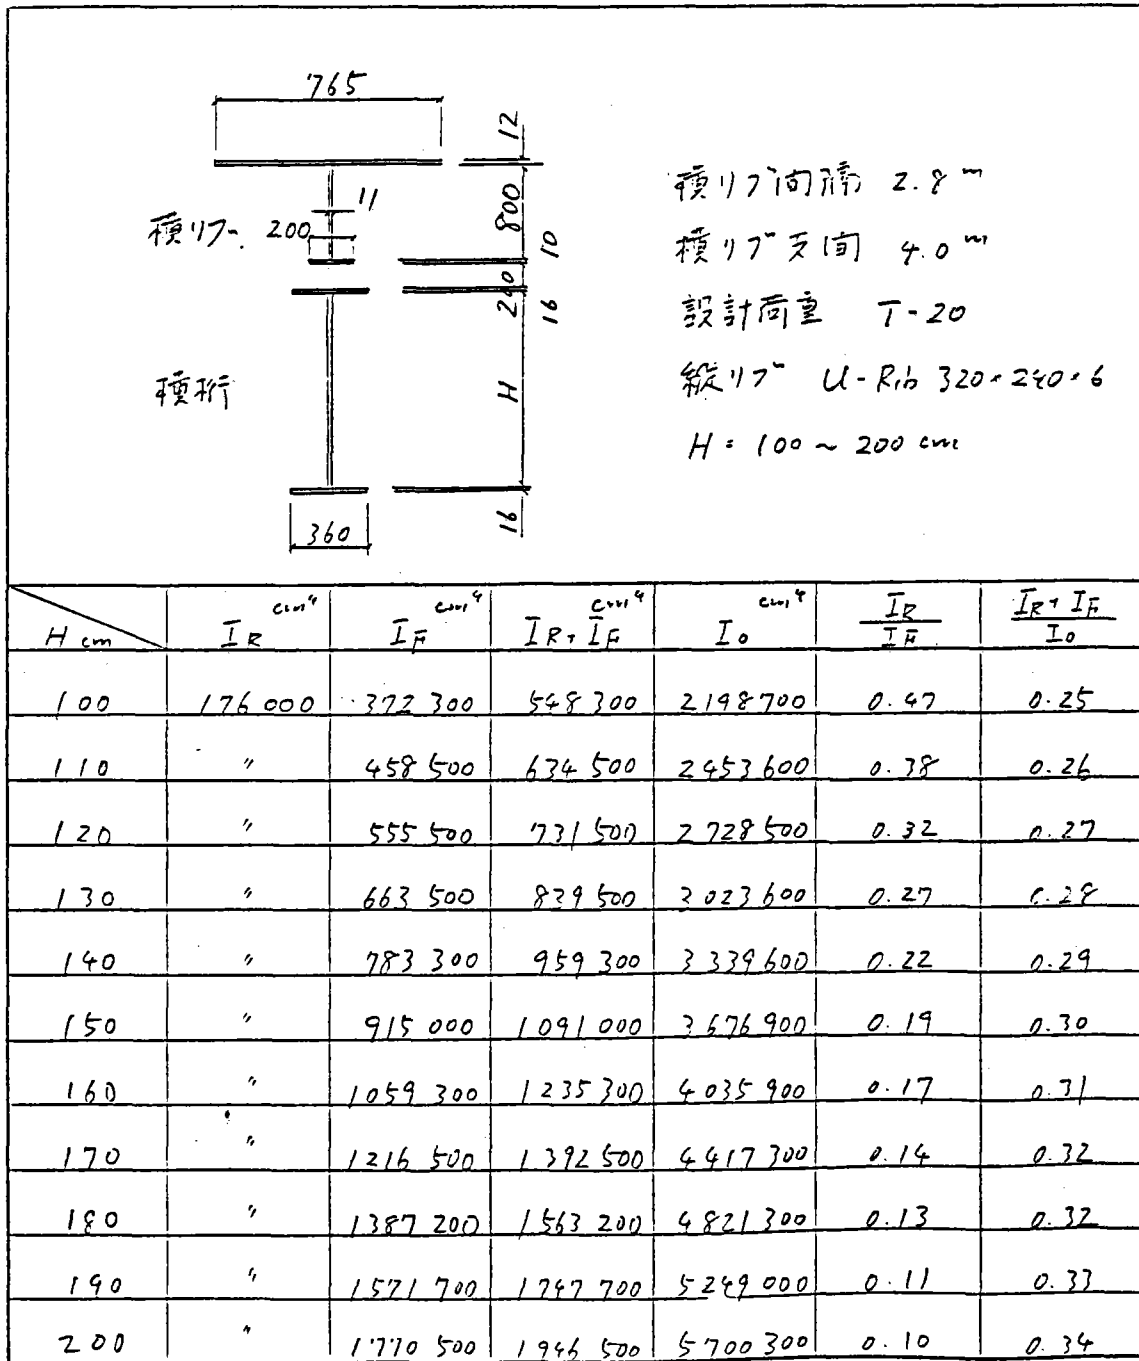 765
12
800
11
横リブ 200
10
240
16
横桁
H
16
360
横リブ間隔 2.8 m
横リブ支間 4.0 m
設計荷重 T-20
縦リブ U-Rib 320×240×6
H = 100 ~ 200 cm
H cm | IR cm⁴ | IF cm⁴ | IR+IF cm⁴ | I0 cm⁴ | IR/IF | IR+IF/I0
100 | 176 000 | 372 300 | 548 300 | 2 198 700 | 0.47 | 0.25
110 | 〃 | 458 500 | 634 500 | 2 453 600 | 0.38 | 0.26
120 | 〃 | 555 500 | 731 500 | 2 728 500 | 0.32 | 0.27
130 | 〃 | 663 500 | 839 500 | 3 023 600 | 0.27 | 0.28
140 | 〃 | 783 300 | 959 300 | 3 339 600 | 0.22 | 0.29
150 | 〃 | 915 000 | 1 091 000 | 3 676 900 | 0.19 | 0.30
160 | 〃 | 1 059 300 | 1 235 300 | 4 035 900 | 0.17 | 0.31
170 | 〃 | 1 216 500 | 1 392 500 | 4 417 300 | 0.14 | 0.32
180 | 〃 | 1 387 200 | 1 563 200 | 4 821 300 | 0.13 | 0.32
190 | 〃 | 1 571 700 | 1 747 700 | 5 249 000 | 0.11 | 0.33
200 | 〃 | 1 770 500 | 1 946 500 | 5 700 300 | 0.10 | 0.34